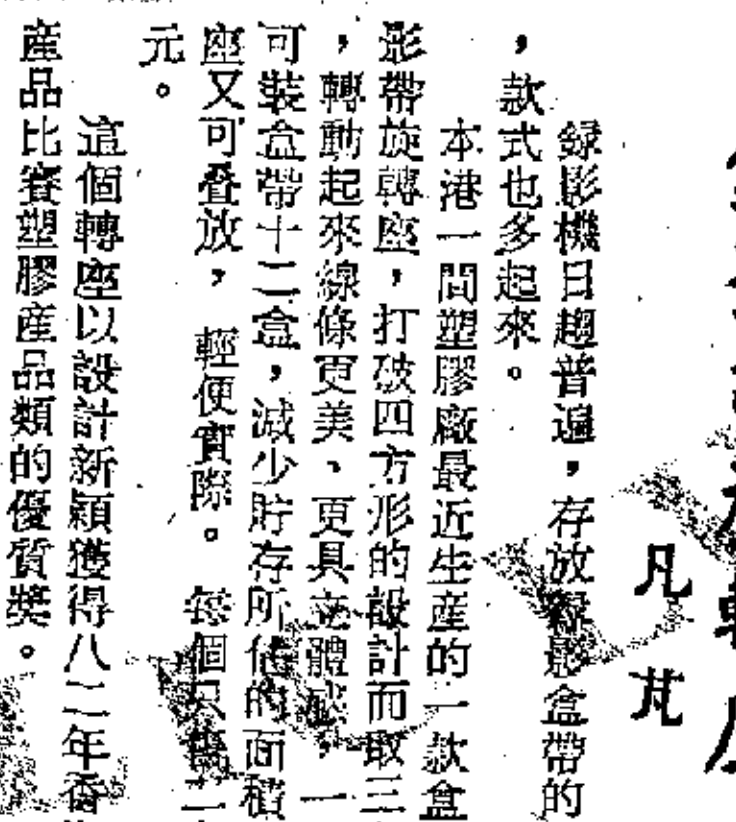 凡芃
錄影機日趨普遍，存放錄影盒帶的
，款式也多起來。
本港一間塑膠廠最近生產的一款盒
影帶旋轉座，打破四方形的設計而取三
，轉動起來線條更美、更具立體感，一
可裝盒帶十二盒，減少貯存所佔的面積
座又可叠放，輕便實際。每個只售二
元。
這個轉座以設計新穎獲得八二年香
產品比賽塑膠產品類的優質獎。